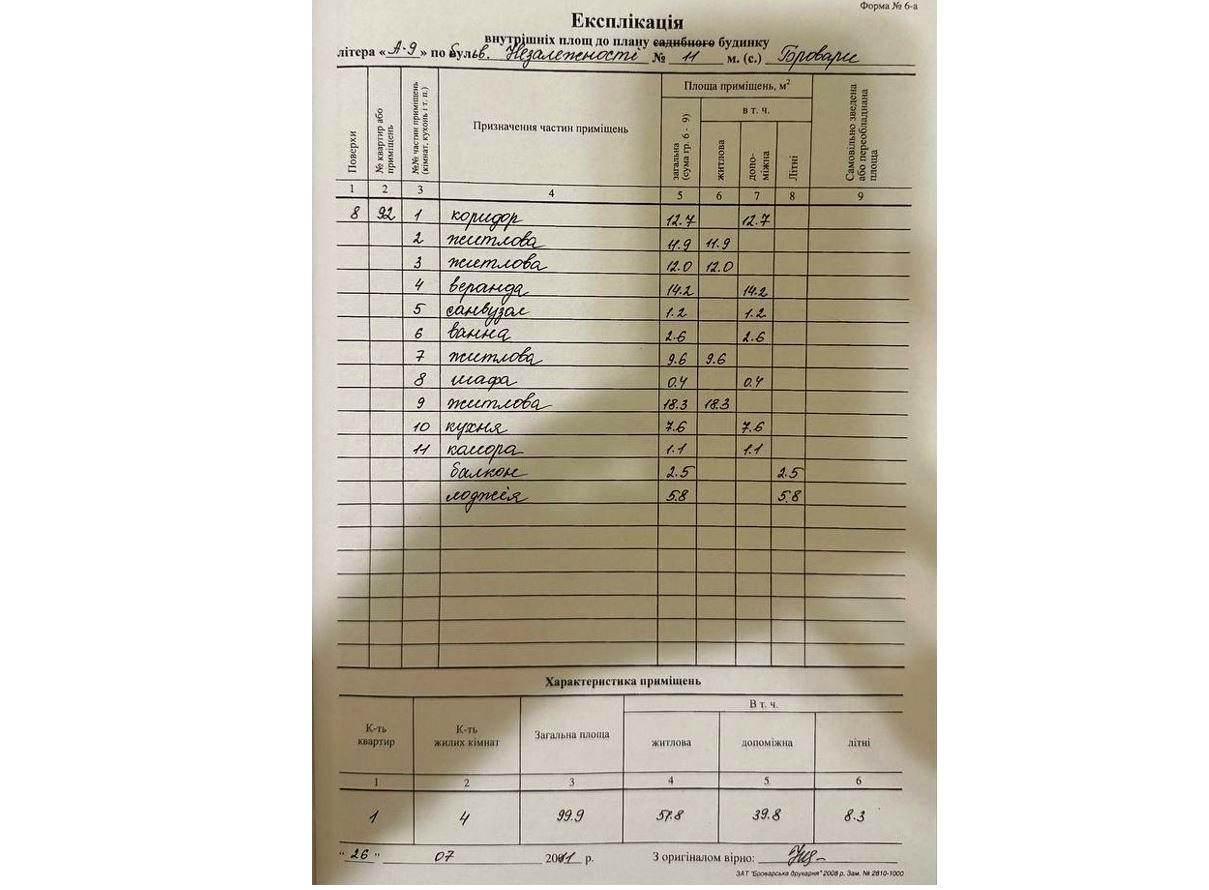 Форма № 6-а
Експлікація
внутрішніх площ до плану садибного будинку
літера «А-9» по бульв. Незалежності № 11 м. (с.) Бровари
Поверхи № квартир або приміщень №№ частин приміщень (кімнат, кухонь і т. п.) Призначення частин приміщень Площа приміщень, м² Самовільно зведена або переобладнана площа
загальна (сума гр. 6 - 9) в т. ч.
житлова допо-міжна Літні
1 2 3 4 5 6 7 8 9
8 92 1 коридор 12.7 12.7
2 житлова 11.9 11.9
3 житлова 12.0 12.0
4 веранда 14.2 14.2
5 санвузол 1.2 1.2
6 ванна 2.6 2.6
7 житлова 9.6 9.6
8 шафа 0.4 0.4
9 житлова 18.3 18.3
10 кухня 7.6 7.6
11 комора 1.1 1.1
балкон 2.5 2.5
лоджія 5.8 5.8
Характеристика приміщень
К-ть квартир К-ть жилих кімнат Загальна площа В т. ч.
житлова допоміжна літні
1 2 3 4 5 6
1 4 99.9 51.8 39.8 8.3
"26" 07 2011 р. З оригіналом вірно:
ЗАТ "Броварська друкарня" 2008 р. Зам. № 2810-1000